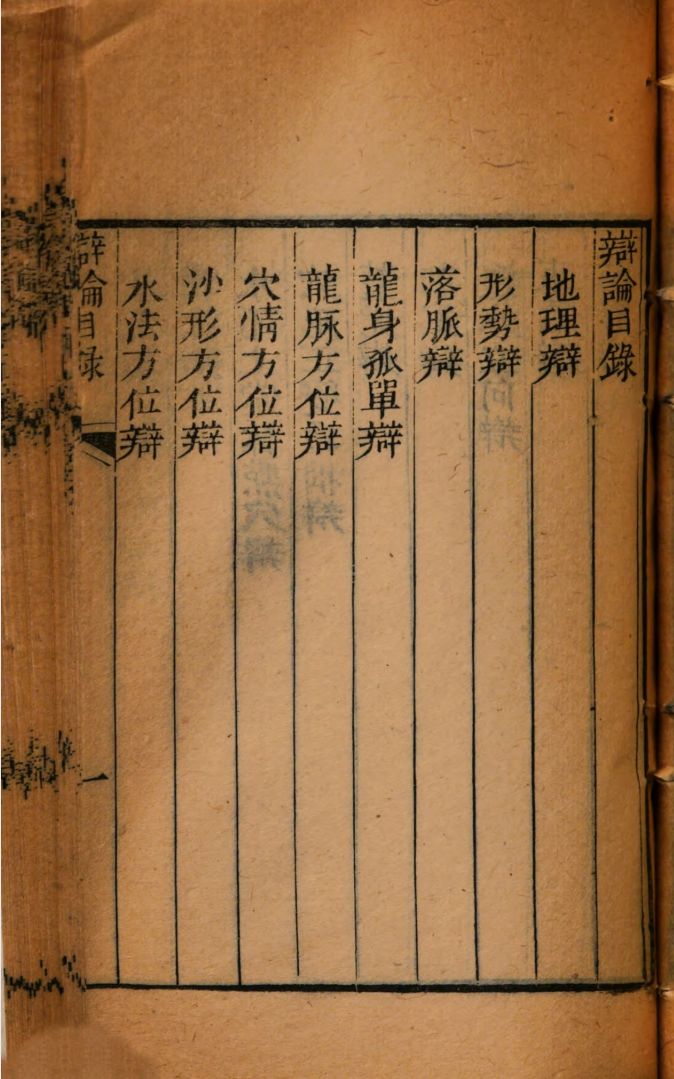 辯論目錄
地理辯
形勢辯
落脈辯
龍身孤單辯
龍脉方位辯
穴情方位辯
沙形方位辯
水法方位辯
辯論目錄
一